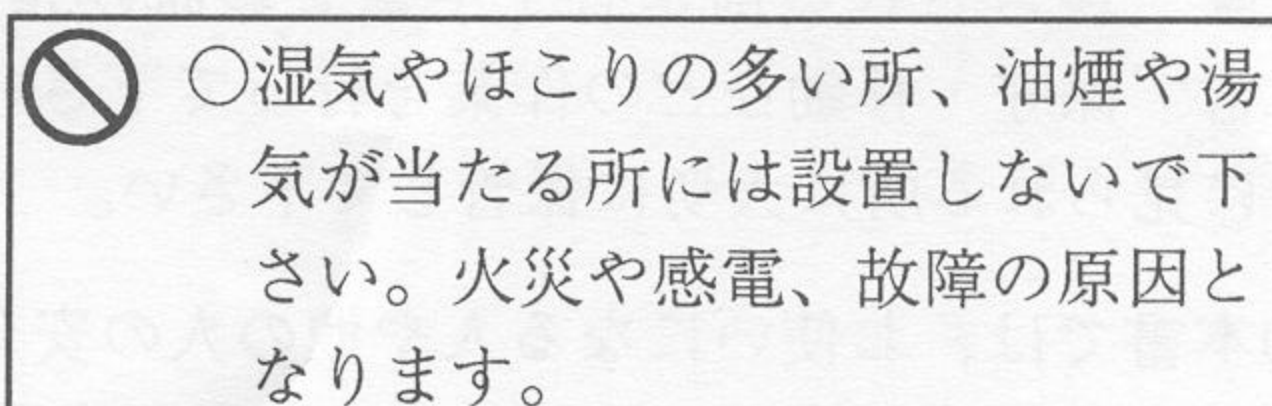 ○湿気やほこりの多い所、油煙や湯
気が当たる所には設置しないで下
さい。火災や感電、故障の原因と
なります。